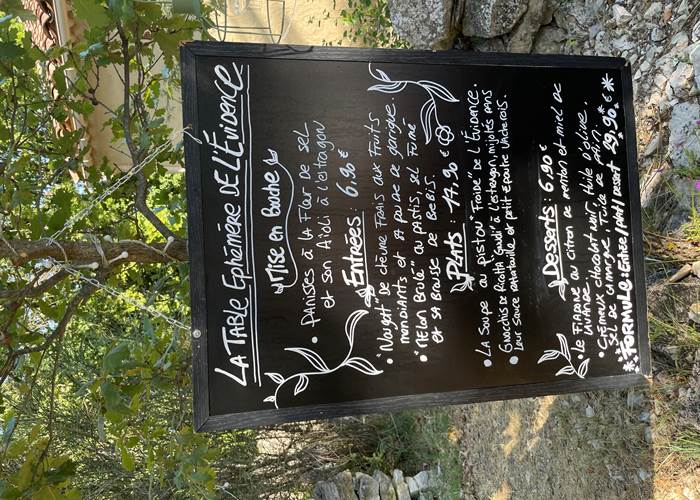 LA TABLE EPHÉMÈRE DE L'ÉVIDENCE
Mise en Bouche
• PANISSES à LA FLEUR DE SEL
et son Aïoli à l'estragon
Entrées : 6,90 €
• "Nougat" de chèvre FRAIS aux FRUITS
mendiants et sa purée de garrigue.
• "MELON BRULÉ" au pastis, sel Fumé
et sa BROUSSE de BREBIS.
Plats : 17,90 €
• LA Soupe au pistou "Froide" DE L'ÉVIDENCE.
• Gnocchis de Ricotta à l'estragon, mijotés dans
leur sauce et petit Epeautre
Desserts : 6,90 €
• LE FIADONE au citron de menton et miel de
LAVANDE
• Crémeux chocolat noir, Huile d'olive,
SEL DE CAMARGUE, Tuile de pain.
FORMULE : Entrée / Plat / Dessert 29,90 €